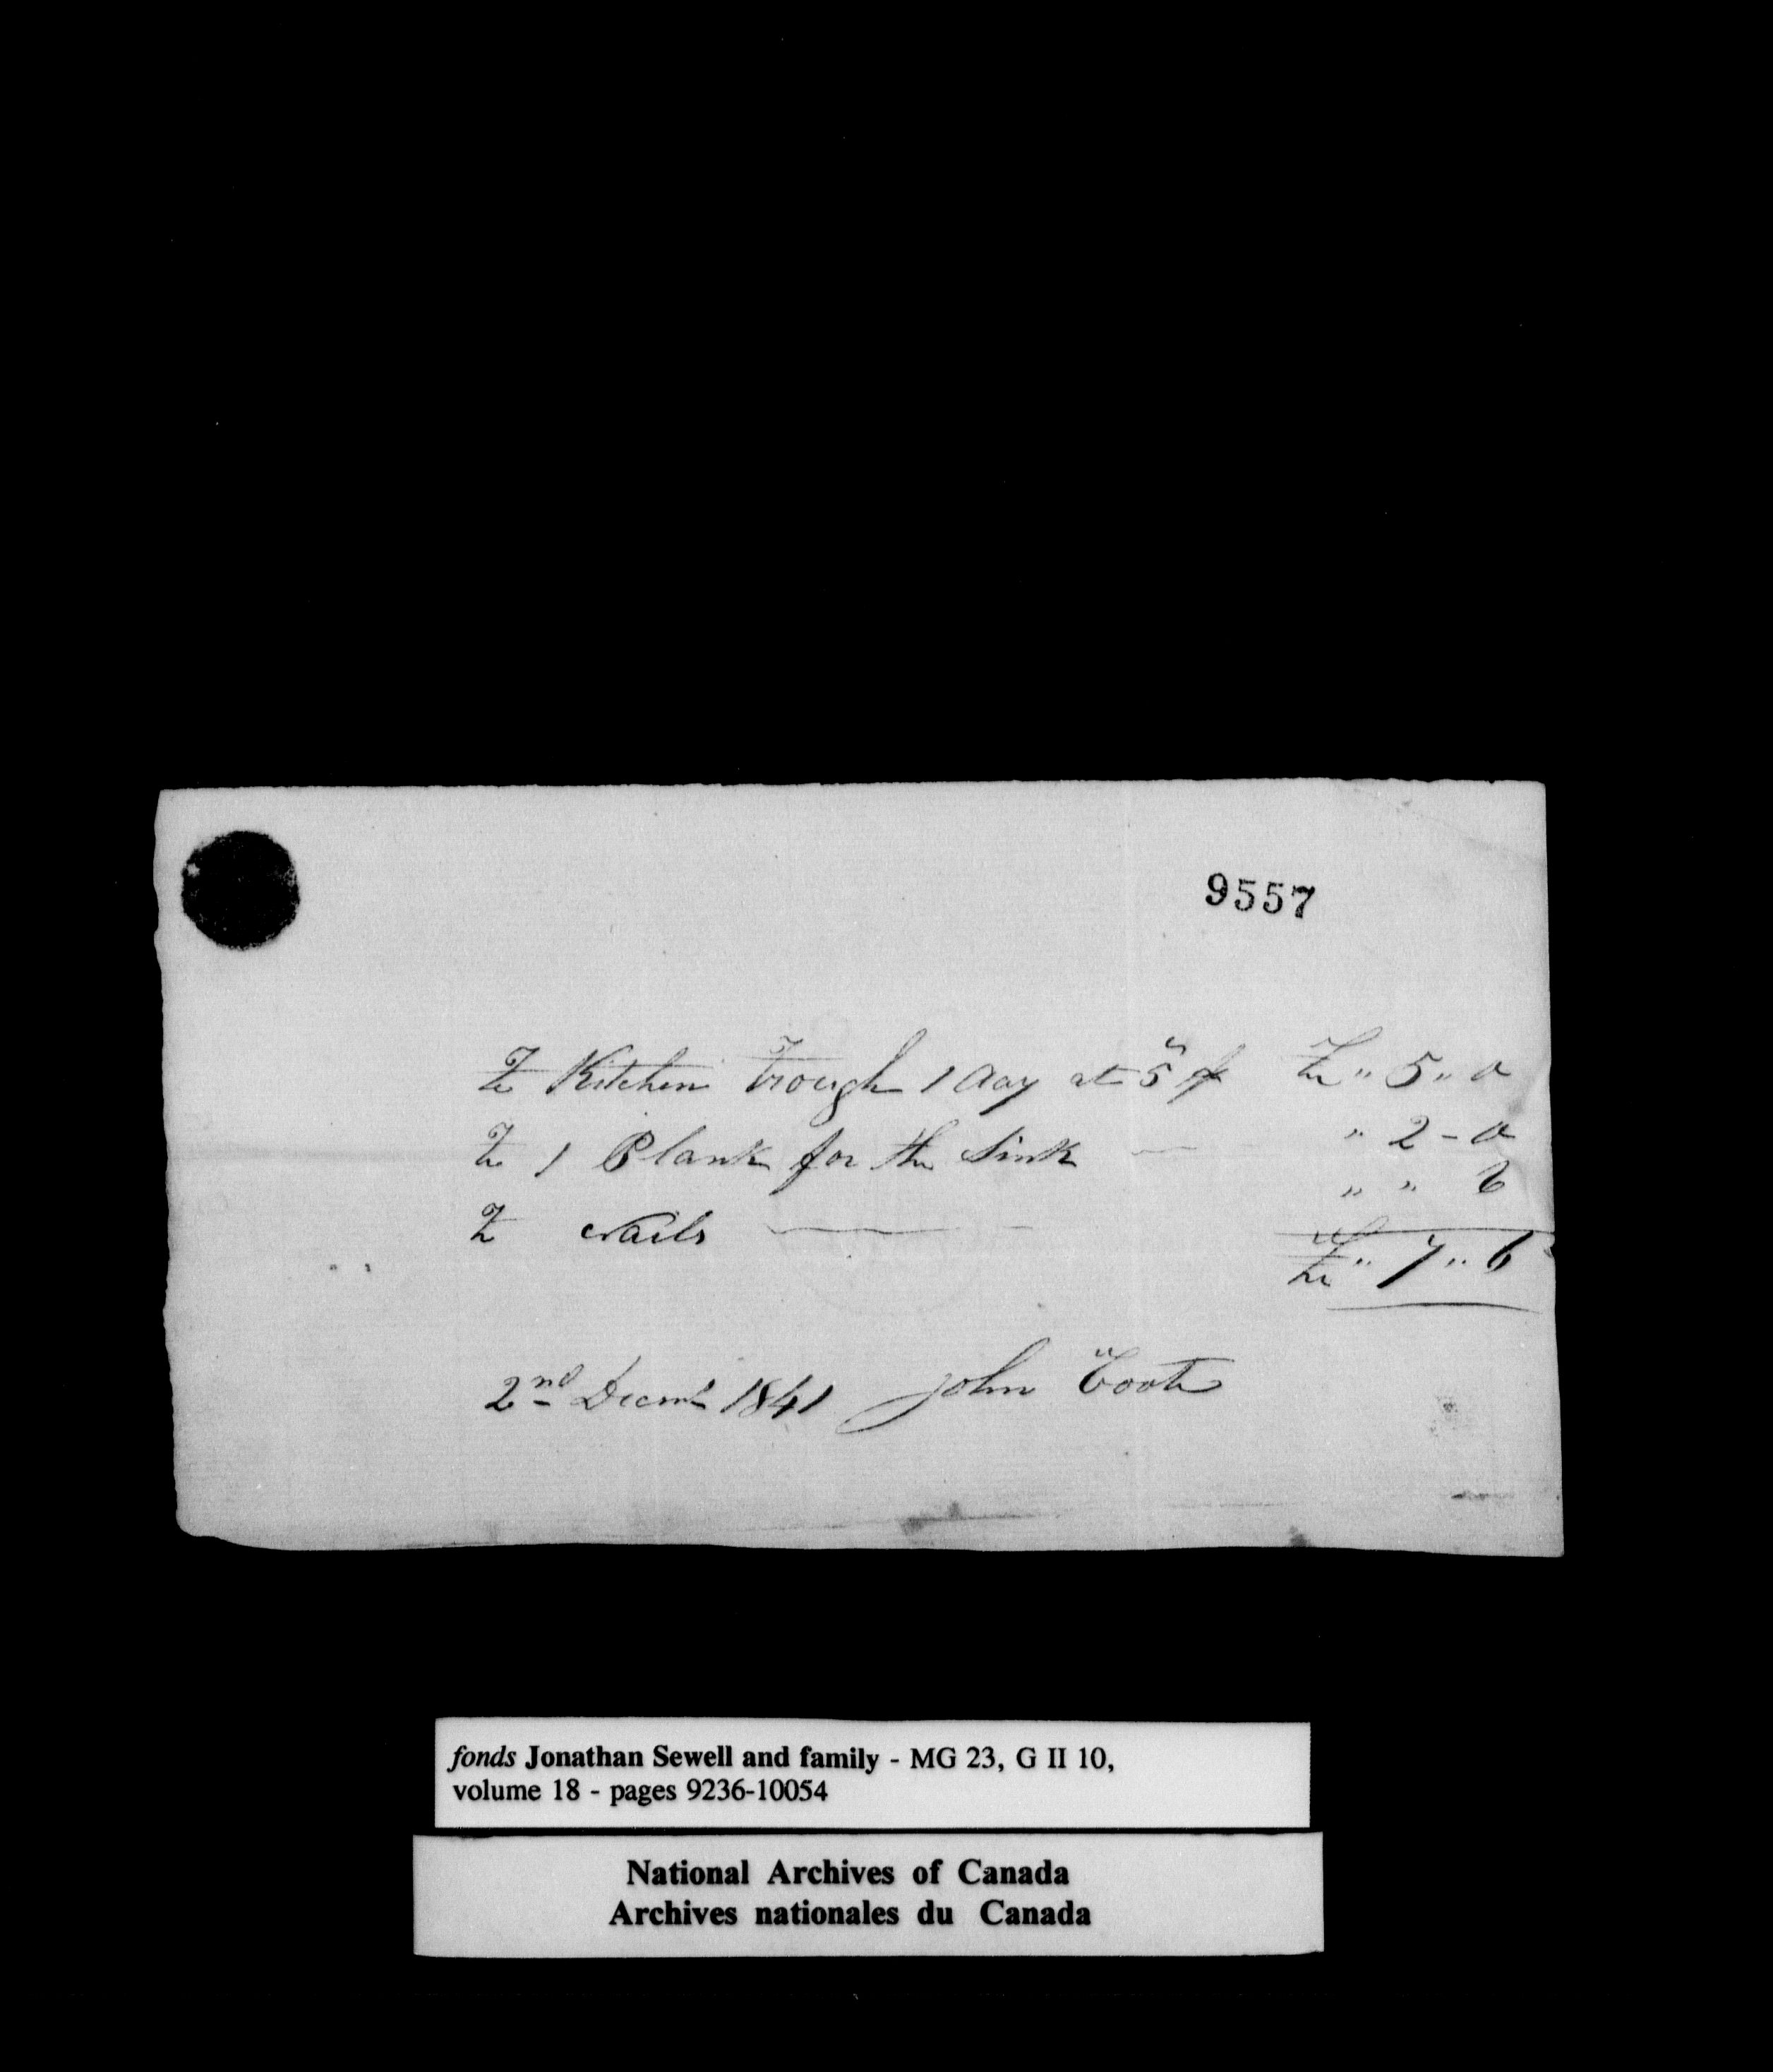 9557
To Kitchen Trough 1 day at 5s/ £ " 5 " 0
To 1 Plank for the Sink — " 2 - 0
" " 6
To Nails —
£ " 7 " 6
2nd Decmb 1841 John
fonds Jonathan Sewell and family - MG 23, G II 10,
volume 18 - pages 9236-10054
National Archives of Canada
Archives nationales du Canada